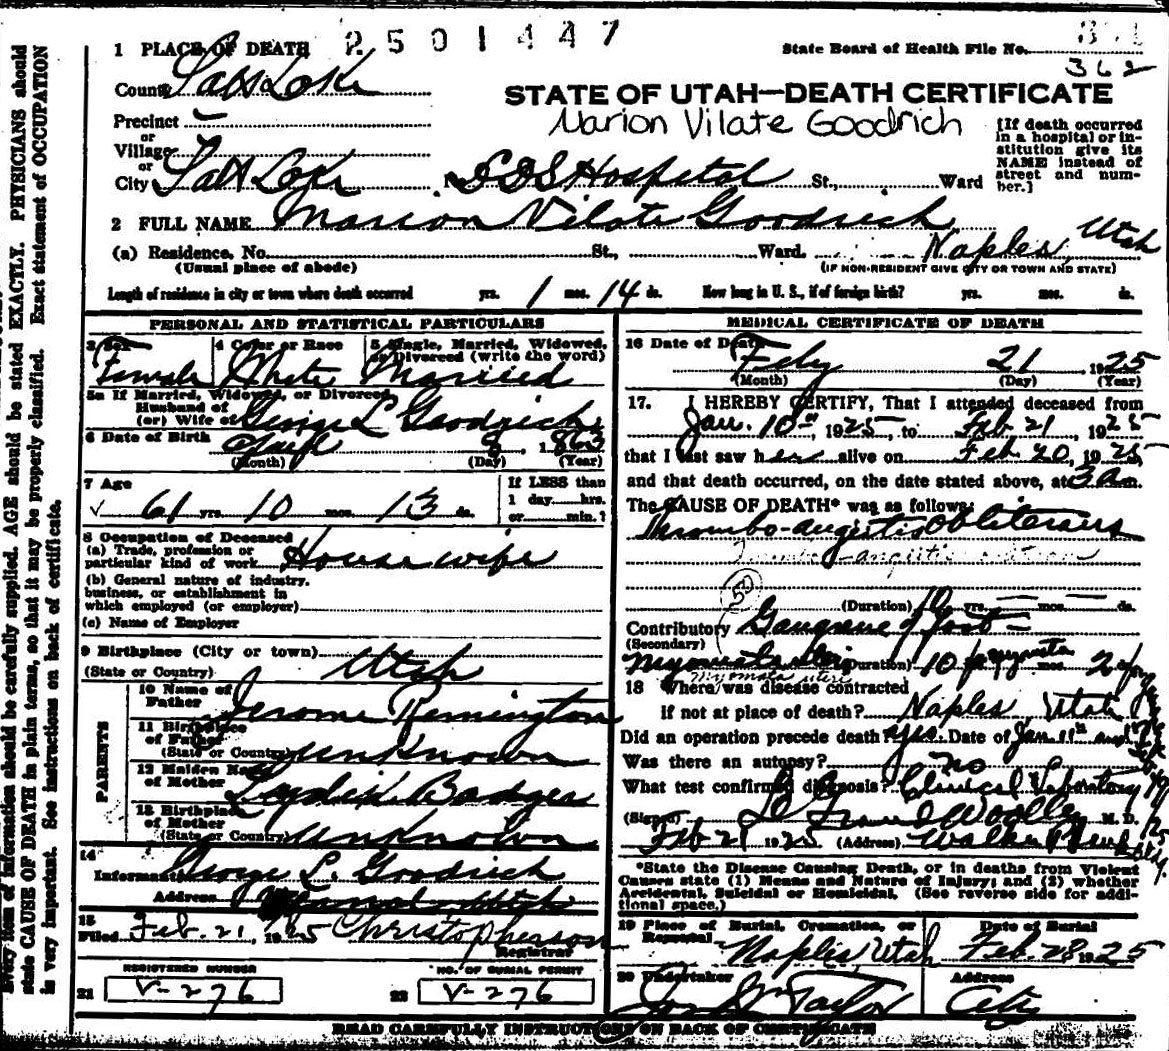 1 PLACE OF DEATH 2501447
State Board of Health File No.
362
County Salt Lake
STATE OF UTAH—DEATH CERTIFICATE
Marion Vilate Goodrich
Precinct
or
Village
or
City Salt Lake LDS Hospital St., Ward
[If death occurred in a hospital or institution give its NAME instead of street and number.]
2 FULL NAME Marion Vilate Goodrich
(a) Residence, No. St., Ward. Naples, Utah
(Usual place of abode) (IF NON-RESIDENT GIVE CITY OR TOWN AND STATE)
Length of residence in city or town where death occurred yrs. 1 mos. 14 ds. How long in U. S., if of foreign birth? yrs. mos. ds.
PERSONAL AND STATISTICAL PARTICULARS
3 Sex 4 Color or Race 5 Single, Married, Widowed, or Divorced (write the word)
Female White Married
5a If Married, Widowed, or Divorced
Husband of
(or) Wife of George L Goodrich
6 Date of Birth 8, 1863
(Month) (Day) (Year)
7 Age If LESS than
61 yrs. 10 mos. 13 ds. 1 day hrs.
or min.?
8 Occupation of Deceased
(a) Trade, profession or
particular kind of work Housewife
(b) General nature of industry,
business, or establishment in
which employed (or employer)
(c) Name of Employer
9 Birthplace (City or town)
(State or Country) Utah
PARENTS
10 Name of
Father Jerome Remington
11 Birthplace
of Father
(State or Country) Unknown
12 Maiden Name
of Mother Lydia Badger
13 Birthplace of
Mother
(State or Country) Unknown
14
Informant George L. Goodrich
Address
15
Filed Feb. 21, 1925 Christopherson
Registrar
REGISTERED NUMBER NO. OF BURIAL PERMIT
21 V-276 22 V-276
MEDICAL CERTIFICATE OF DEATH
16 Date of Death
Feby 21 1925
(Month) (Day) (Year)
17. I HEREBY CERTIFY, That I attended deceased from
Jan. 10th, 1925, to Feb 21, 1925
that I last saw her alive on Feb 20, 1925,
and that death occurred, on the date stated above, at 3 am.
The CAUSE OF DEATH* was as follows:
Thrombo-angiitis Obliterans
50
(Duration) 10 yrs. — mos. — ds.
Contributory Gangrene of foot —
(Secondary)
Myomata uteri (Duration) 10
Myomata uteri
18 Where was disease contracted
if not at place of death? Naples, Utah
Did an operation precede death? yes. Date of Jan 11th
Was there an autopsy? No
What test confirmed diagnosis? Clinical Laboratory
(Signed) Woolley M. D.
Feb 21 1925 (Address) Walker Bank Bldg.
*State the Disease Causing Death, or in deaths from Violent
Causes state (1) Means and Nature of Injury; and (2) whether
Accidental, Suicidal or Homicidal. (See reverse side for additional space.)
19 Place of Burial, Cremation, or Removal Date of Burial
Naples, Utah Feb. 28 1925
20 Undertaker Address
Taylor City
READ CAREFULLY INSTRUCTIONS ON BACK OF CERTIFICATE
Every item of information should be carefully supplied. AGE should be stated EXACTLY. PHYSICIANS should
state CAUSE OF DEATH in plain terms, so that it may be properly classified. Exact statement of OCCUPATION
is very important. See instructions on back of certificate.